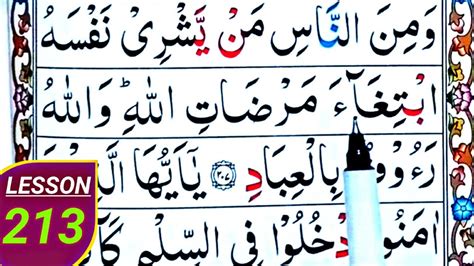 وَمِنَ النَّاسِ مَنْ يَّشْرِىْ نَفْسَهُ
ابْتِغَآءَ مَرْضَاتِ اللّٰهِ ؕ وَاللّٰهُ
رَءُوْفٌۢ بِالْعِبَادِ ﴿۲۰۷﴾ يٰۤاَيُّهَا
اٰمَنُوا ادْخُلُوْا فِى السِّلْمِ
LESSON
213